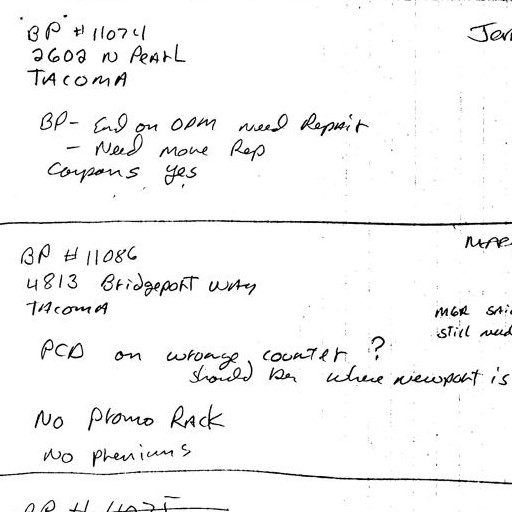 BP # 11074
2602 N PEARL
TACOMA
Jer
BP - End on ODM need Repair
- Need move Rep
Coupons yes
BP # 11086
4813 Bridgeport WAy
TACOMA
MGR SAid
still need
PCD on wronge counter ?
should be where newport is
No Promo RACK
No Premiums
BP #